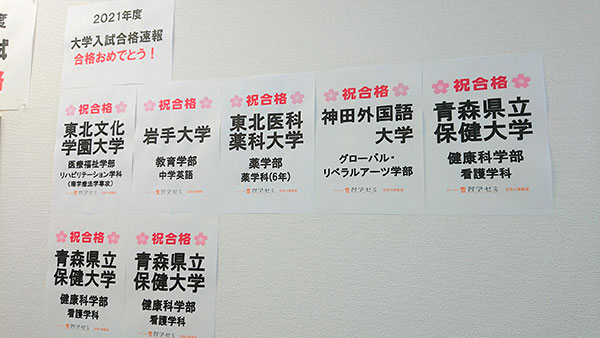 2021年度
大学入試合格速報
合格おめでとう！
祝合格
東北文化
学園大学
医療福祉学部
リハビリテーション学科
(理学療法学専攻)
習学ゼミ
祝合格
岩手大学
教育学部
中学英語
習学ゼミ
祝合格
東北医科
薬科大学
薬学部
薬学科(6年)
習学ゼミ
祝合格
神田外国語
大学
グローバル・
リベラルアーツ学部
習学ゼミ
祝合格
青森県立
保健大学
健康科学部
看護学科
習学ゼミ
祝合格
青森県立
保健大学
健康科学部
看護学科
習学ゼミ
祝合格
青森県立
保健大学
健康科学部
看護学科
習学ゼミ